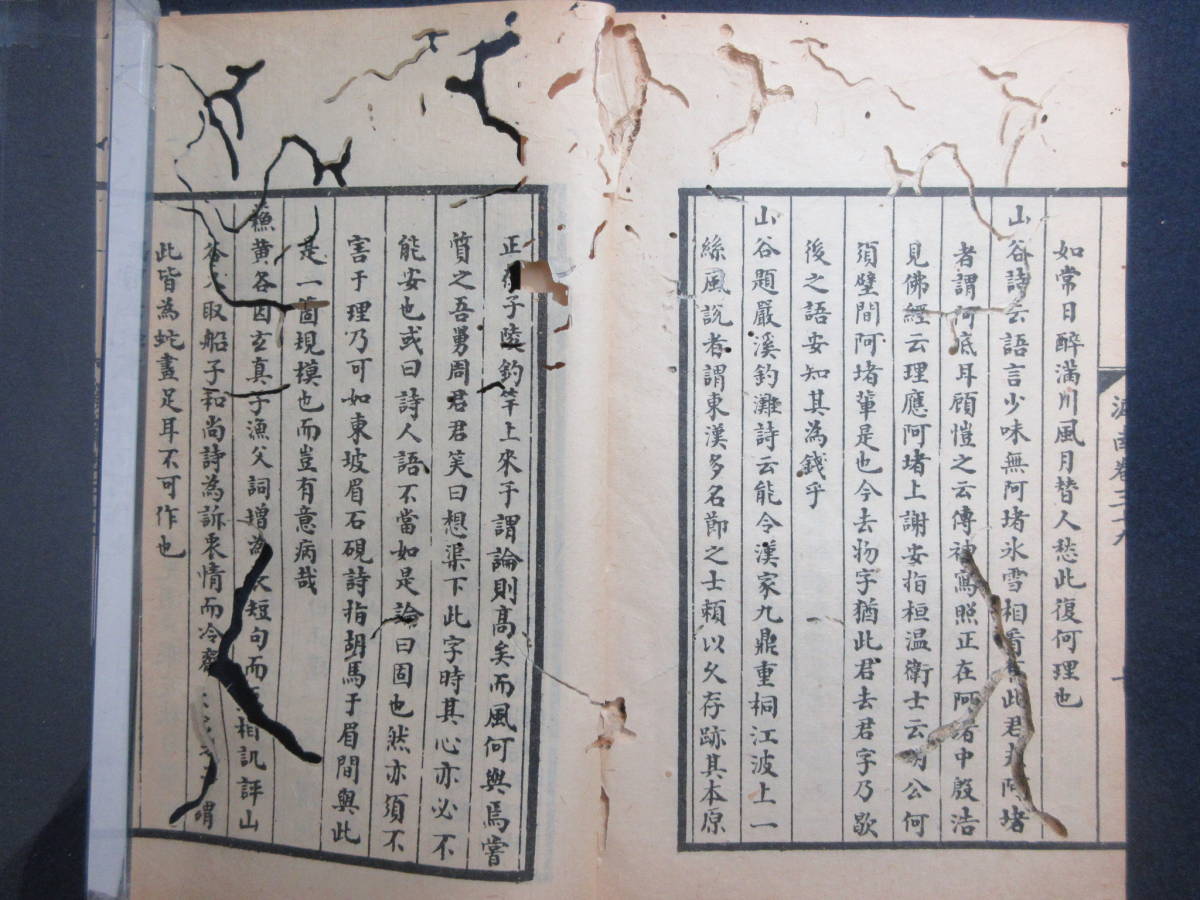 滹南卷三十九
如常日醉滿川風月替人愁此復何理也
山谷詩云語言少味無阿堵氷雪相看此君者阿堵
者謂阿底耳顧愷之云傳神寫照正在阿堵中殷浩
見佛經云理應阿堵上謝安指桓温衛士云明公何
須壁間阿堵軰是也今去物字猶此君去君字乃歇
後之語安知其為錢乎
山谷題嚴溪釣灘詩云能令漢家九鼎重桐江波上一
絲風說者謂東漢多名節之士賴以久存跡其本原
正子陵釣竿上來予謂論則高矣而風何與焉嘗
質之吾舅周君君笑曰想渠下此字時其心亦必不
能安也或曰詩人語不當如是論曰固也然亦須不
害于理乃可如東坡眉石硯詩指胡馬于眉間與此
是一箇規模也而豈有意病哉
黄各因玄真子漁父詞増為短句而相訊評山
谷又取船子和尚詩為訴衷情而冷齋謂
此皆為蛇畫足耳不可作也